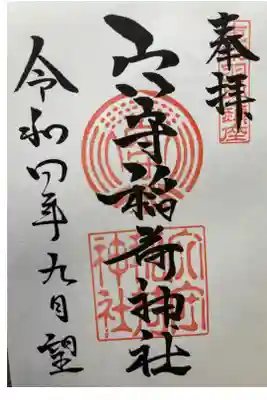 奉拝
穴守稲荷神社
令和四年九月望
穴守
神社